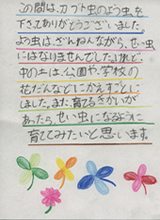 この間は、カブト虫のよう虫を
下さてありがとうございました。
よう虫は、ざんねんながら、せい虫
にはなりませんでした。けれど、
中の土は、公園や、学校の
花だんなどにかえすことに
しました。また、育てるきかいが
あったら、せい虫になるように
育ててみたいと思います。